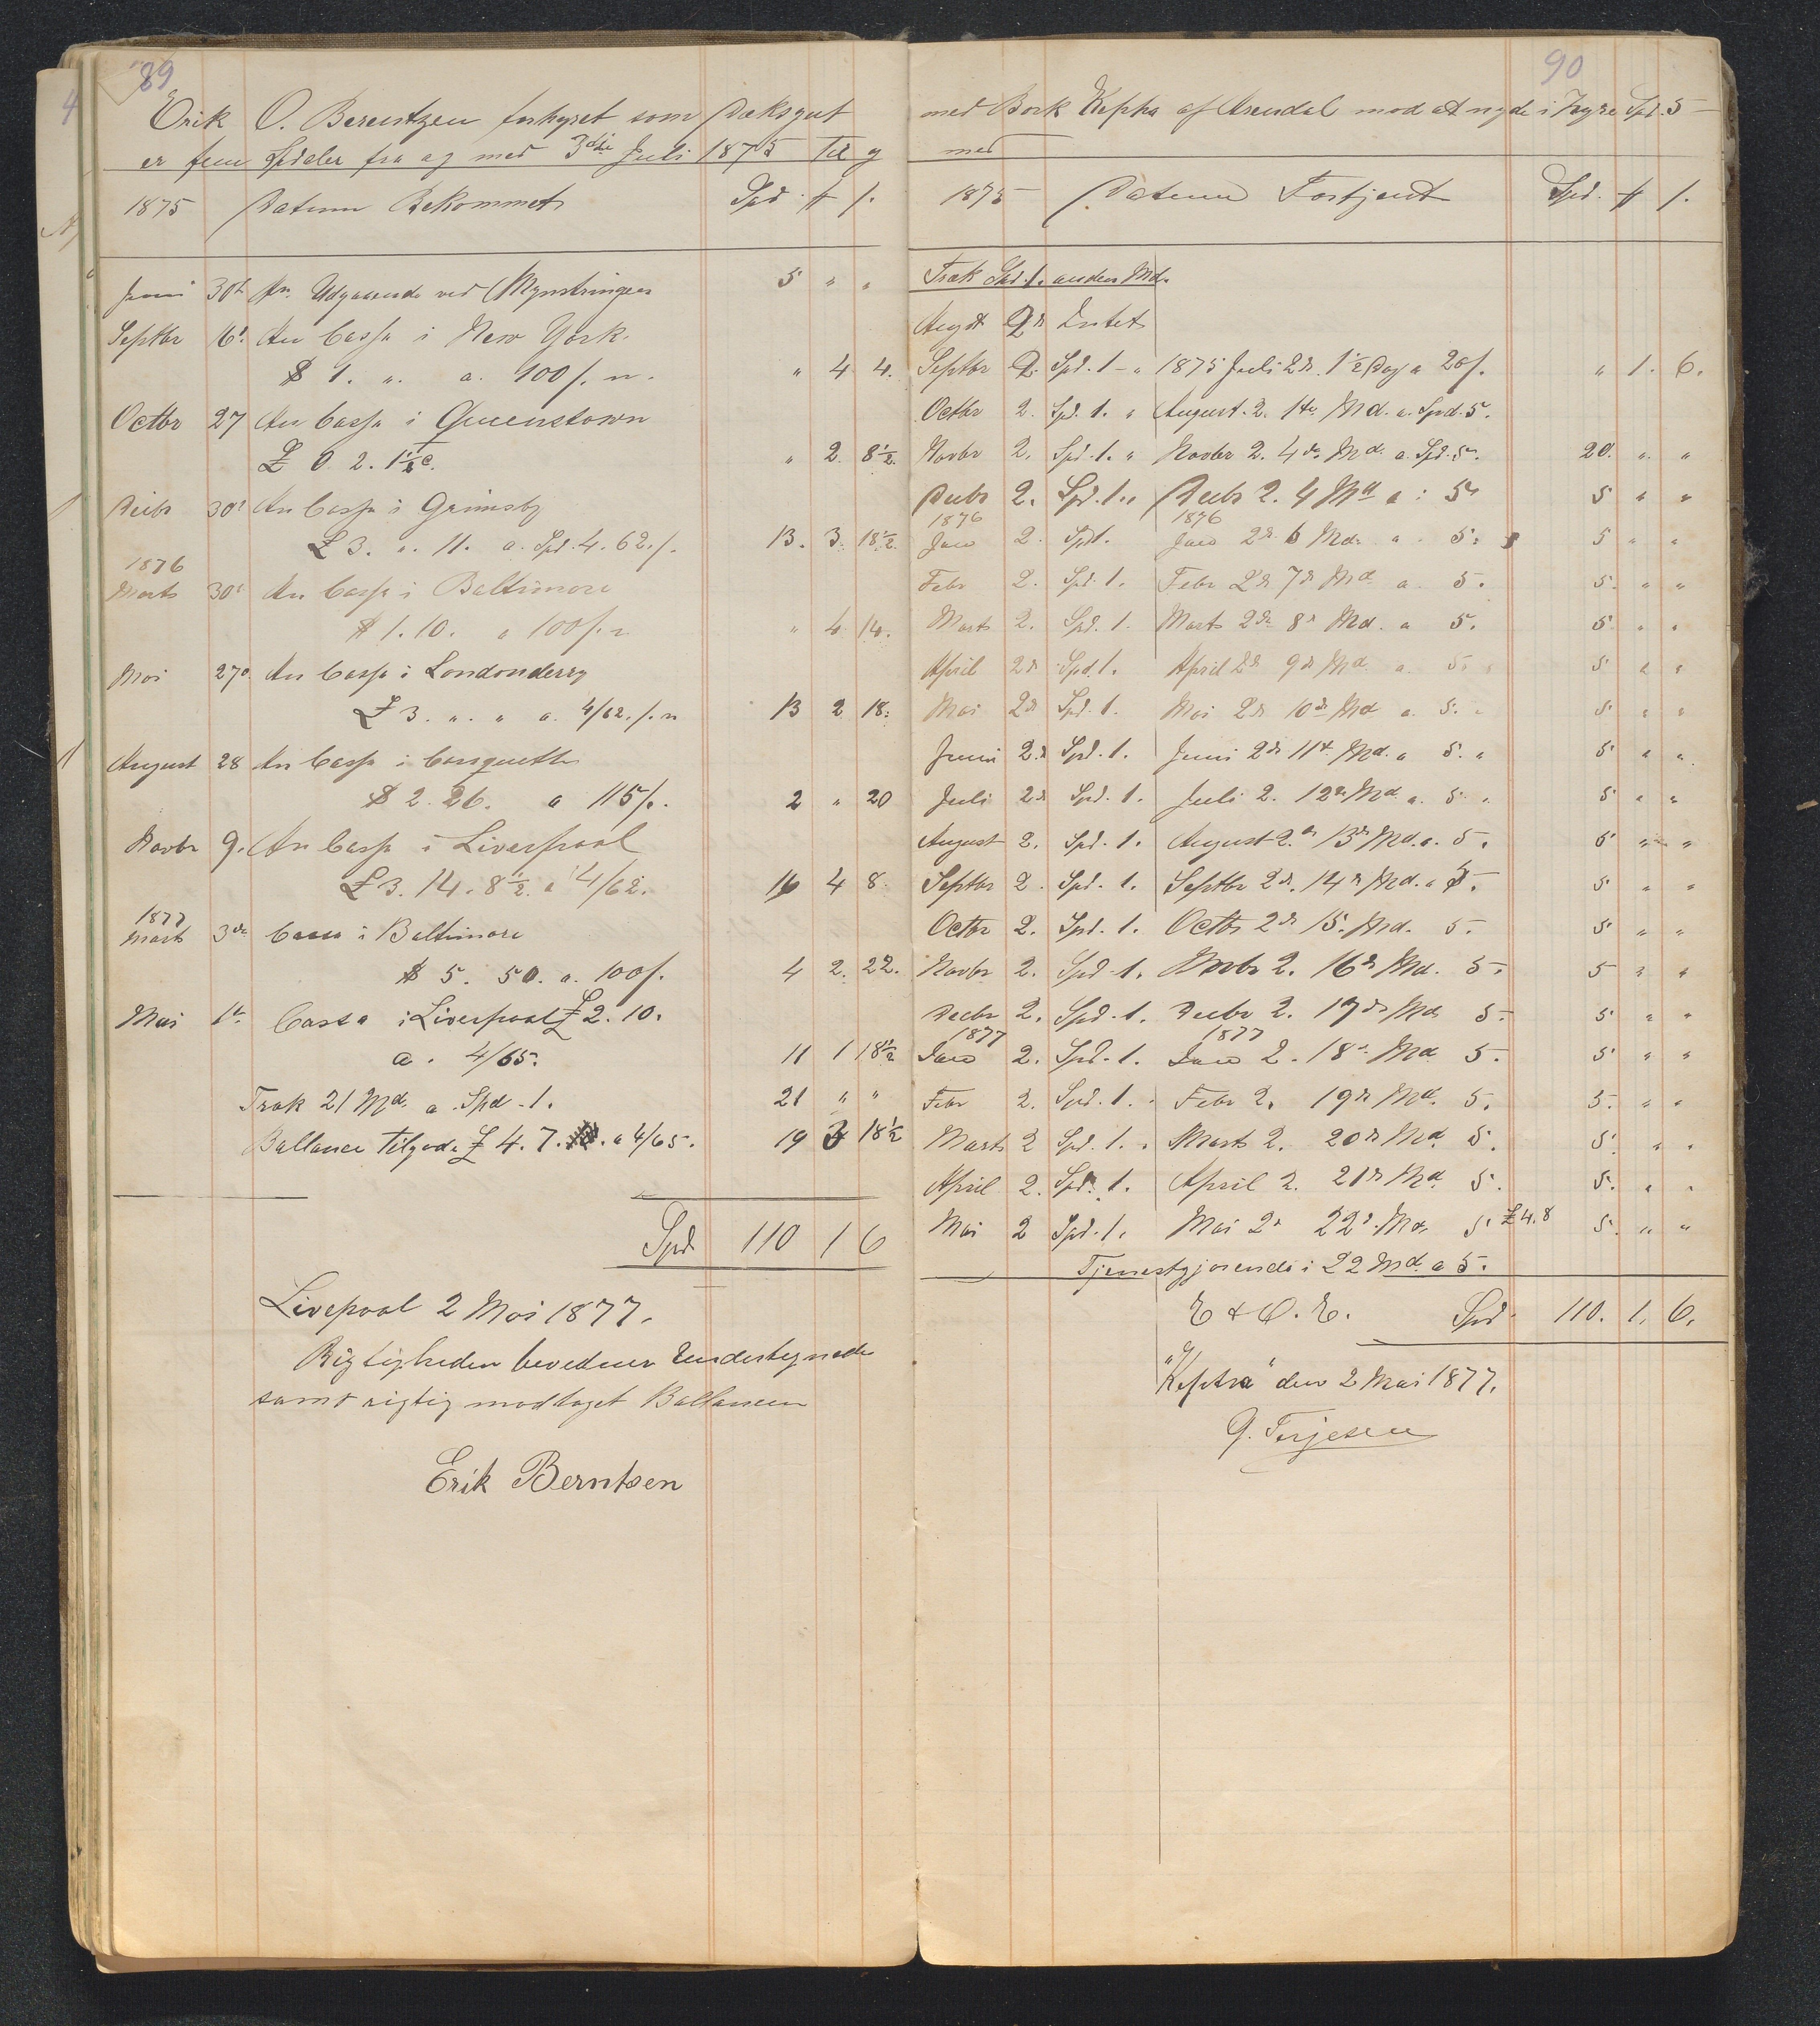 89
Erik O. Berentzen forhyret som Dæksgut
er fem Spdaler fra og med 3die Juli 1875 til og
1875 Datum Bekommet Spd. # /.
Juni 30t An. Udgaaende ved Mynstringen 5 " "
Septbr 16d An Cassa i New York.
$ 1. ". a. 100/. n. " 4 4.
Octbr 27 An Cassa i Queenstown
£ 0. 2. 1½ " 2. 8½.
Decbr 30t An Cassa i Grimsby
£ 3. ". 11. a. Spd. 4. 62./. 13. 3. 18½.
1876
Marts 30t An Cassa i Baltimore
$ 1. 10. a 100/. n " 4 14.
Mai 27d An Cassa i Londonderry
£ 3. ". " a. 4/62./. n 13 2 18.
August 28 An Cassa i
$ 2. 26. a 115/. 2 " 20
Novbr 9. An Cassa i Liverpool
£ 3. 14. 8½. a 4/62. 16 4 8.
1877
Marts 3de Cassa i Baltimore
$ 5. 50. a. 100/. 4 2. 22.
Mai 1t. Cassa i Liverpool £ 2. 10.
a. 4/65. 11 1 18½
Træk 21 Md. a. Spd. 1. 21 " "
Ballance tilgode £ 4. 7. a 4/65. 19 3 18½
Spd 110 1 6
Livepool 2 Mai 1877.
Rigtigheden bevedner Undertegnede
samt rigtig modtaget Ballancen
Erik Berntsen
90
med Bark Kepha af Arendal mod at nyde i Hyre Spd. 5
med
1875 Datum Fortjent Spd. # /.
Træk Spd. 1. anden Md.
Augst 2d Intet
Septbr 2. Spd. 1 - " 1875 Juli 2d. 1½ Dag a 20/. " 1. 6.
Octbr 2. Spd. 1. " August. 2. 1te Md. a. Spd. 5.
Novbr 2. Spd. 1. " Novbr 2. 4de Md. a. Spd. 5. 20. " "
Decbr 2. Spd. 1. " Decbr 2. 4 Md a : 5 5 " "
1876 1876
Jan 2. Spd 1. Jan 2d. 6 Md. a. 5. 5 " "
Febr 2. Spd. 1. Febr 2d 7d Md a. 5. 5. " "
Marts 2. Spd. 1. Marts 2d 8d Md. a 5. 5 " "
April 2d Spd 1. April 2d 9d Md a. 5. 5 " "
Mai 2d Spd. 1. Mai 2d 10d Md a. 5. 5 " "
Juni 2d Spd. 1. Juni 2d 11t. Md. a 5. " 5 " "
Juli 2d Spd. 1. Juli 2. 12d Md a. 5. 5 " "
August 2. Spd. 1. August 2. 13d Md. a. 5. 5 " "
Septbr 2. Spd. 1. Septbr 2d. 14d Md. a 5. 5 " "
Octbr 2. Spd. 1. Octbr 2d 15. Md. 5. 5 " "
Novbr 2. Spd. 1. Novbr 2. 16d Md. 5. 5 " "
Decbr 2. Spd. 1. Decbr 2. 17d Md 5. 5 " "
1877 1877
Jan 2. Spd. 1. Jan 2. 18d Md 5. 5 " "
Febr 2. Spd. 1. Febr 2. 19d Md. 5. 5. " "
Marts 2 Spd. 1. Marts 2. 20d Md. 5. 5. " "
April 2. Spd. 1. April 2. 21d Md 5. 5. " "
Mai 2 Spd. 1. Mai 2d 22d. Md. 5. £ 4. 8 5. " "
Tjenestgjørende i 22 Md. a 5.
E & O. E. Spd. 110. 1. 6.
"Kepha" den 2 Mai 1877.
G. Terjesen